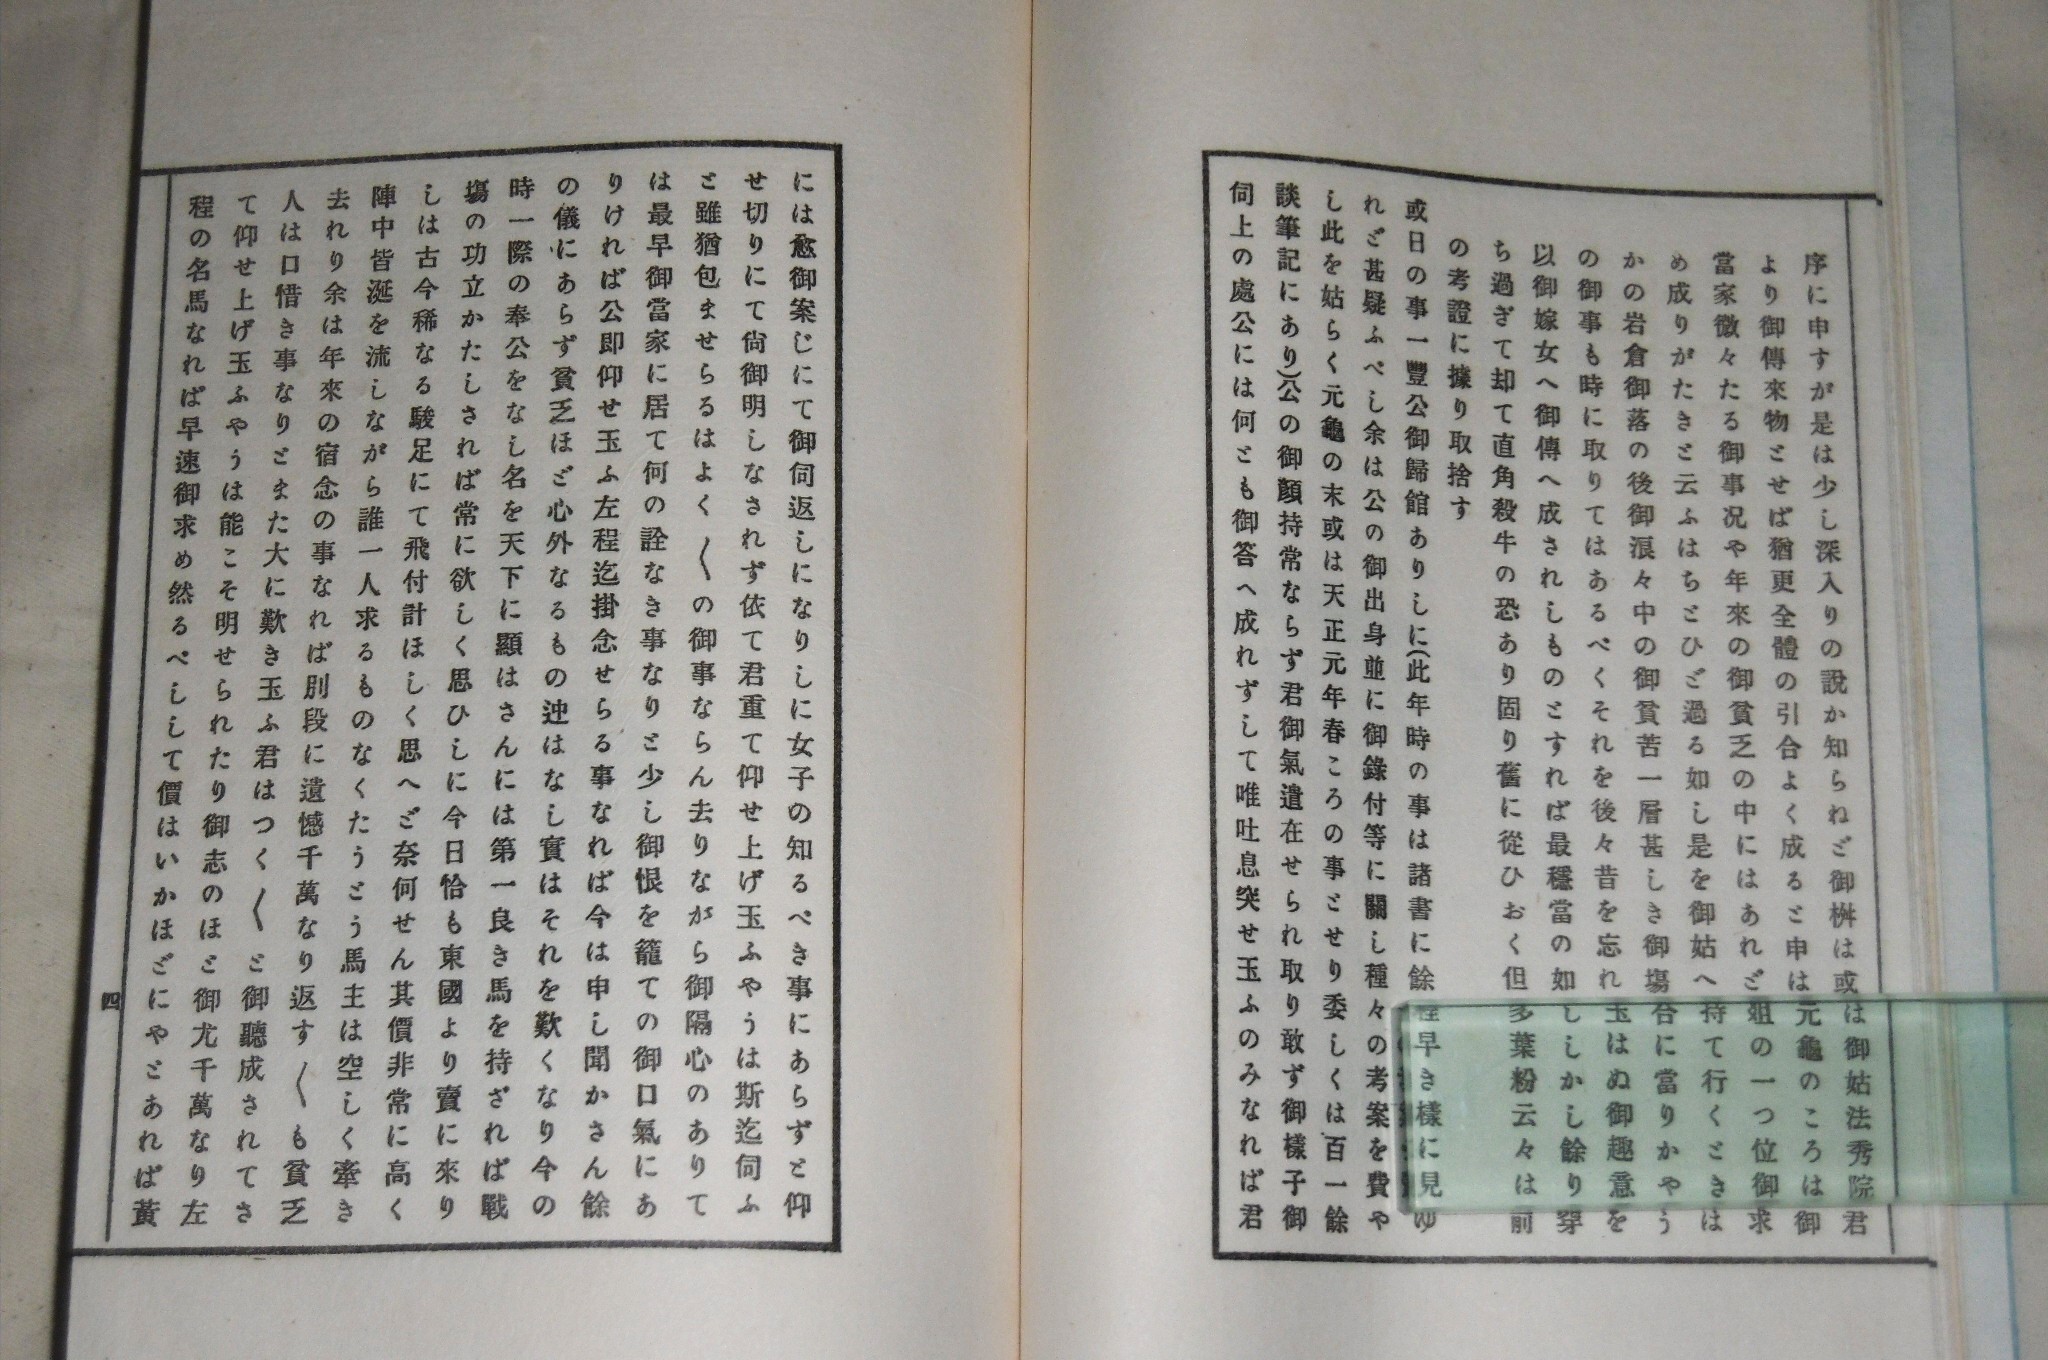 序に申すが是は少し深入りの説か知らねど御桝は或は御姑法秀院君
より御傳來物とせば猶更全體の引合よく成ると申は元龜のころは御
當家微々たる御事况や年來の御貧乏の中にはあれど姐の一つ位御求
め成りがたきと云ふはちとひど過る如し是を御姑へ持て行くときは
かの岩倉御落の後御浪々中の御貧苦一層甚しき御塲合に當りかやう
の御事も時に取りてはあるべくそれを後々昔を忘れ玉はぬ御趣意を
以御嫁女へ御傳へ成されしものとすれば最穩當の如ししかし餘り穿
ち過ぎて却て直角殺牛の恐あり固り舊に從ひおく但多葉粉云々は前
の考證に據り取捨す
或日の事一豐公御歸館ありしに(此年時の事は諸書に餘程早き樣に見ゆ
れど甚疑ふべし余は公の御出身並に御錄付等に關し種々の考案を費や
し此を姑らく元龜の末或は天正元年春ころの事とせり委しくは百一餘
談筆記にあり)公の御顏持常ならず君御氣遣在せられ取り敢ず御樣子御
伺上の處公には何とも御答へ成れずして唯吐息突せ玉ふのみなれば君
には愈御案じにて御伺返しになりしに女子の知るべき事にあらずと仰
せ切りにて尙御明しなされず依て君重て仰せ上げ玉ふやうは斯迄伺ふ
と雖猶包ませらるはよく〱の御事ならん去りながら御隔心のありて
は最早御當家に居て何の詮なき事なりと少し御恨を籠ての御口氣にあ
りければ公即仰せ玉ふ左程迄掛念せらる事なれば今は申し聞かさん餘
の儀にあらず貧乏ほど心外なるもの迚はなし實はそれを歎くなり今の
時一際の奉公をなし名を天下に顯はさんには第一良き馬を持ざれば戰
塲の功立かたしされば常に欲しく思ひしに今日恰も東國より賣に來り
しは古今稀なる駿足にて飛付計ほしく思へど奈何せん其價非常に高く
陣中皆涎を流しながら誰一人求るものなくたうとう馬主は空しく牽き
去れり余は年來の宿念の事なれば別段に遺憾千萬なり返す〱も貧乏
人は口惜き事なりとまた大に歎き玉ふ君はつく〱と御聽成されてさ
て仰せ上げ玉ふやうは能こそ明せられたり御志のほと御尤千萬なり左
程の名馬なれば早速御求め然るべしして價はいかほどにやとあれば黃
四